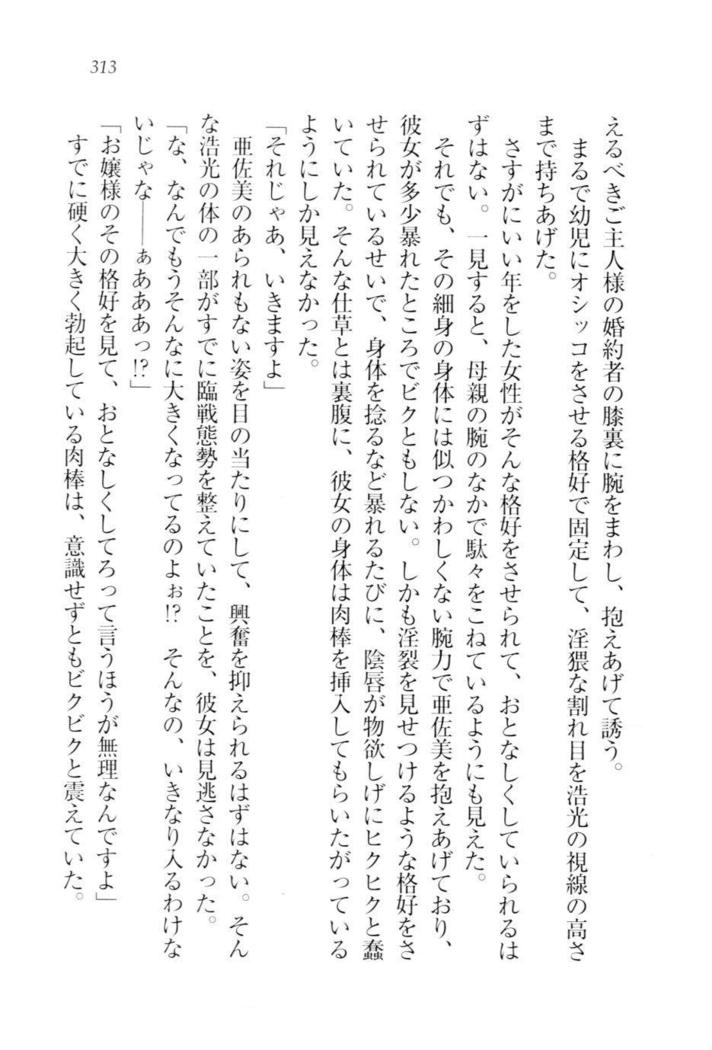 313
えるべきご主人様の婚約者の膝裏に腕をまわし、抱えあげて誘う。
まるで幼児にオシッコをさせる格好で固定して、淫猥な割れ目を浩光の視線の高さ
まで持ちあげた。
さすがにいい年をした女性がそんな格好をさせられて、おとなしくしていられるは
ずはない。一見すると、母親の腕のなかで駄々をこねているようにも見えた。
それでも、その細身の身体には似つかわしくない腕力で亜佐美を抱えあげており、
彼女が多少暴れたところでビクともしない。しかも淫裂を見せつけるような格好をさ
せられているせいで、身体を捻るなど暴れるたびに、陰唇が物欲しげにヒクヒクと蠢
いていた。そんな仕草とは裏腹に、彼女の身体は肉棒を挿入してもらいたがっている
ようにしか見えなかった。
「それじゃあ、いきますよ」
亜佐美のあられもない姿を目の当たりにして、興奮を抑えられるはずはない。そん
な浩光の体の一部がすでに臨戦態勢を整えていたことを、彼女は見逃さなかった。
「な、なんでもうそんなに大きくなってるのよぉ!?　そんなの、いきなり入るわけな
いじゃな――ぁあああっ!?」
「お嬢様のその格好を見て、おとなしくしてろって言うほうが無理なんですよ」
すでに硬く大きく勃起している肉棒は、意識せずともビクビクと震えていた。